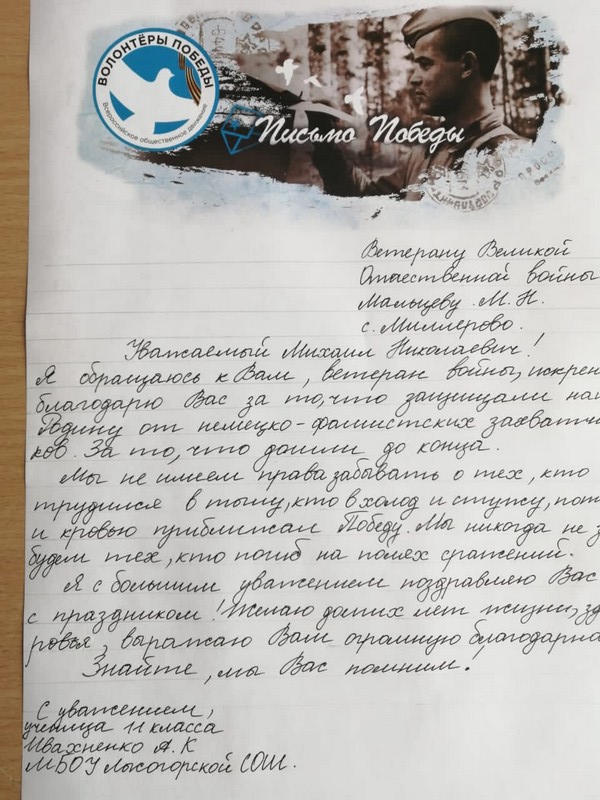 ВОЛОНТЁРЫ ПОБЕДЫ
Всероссийское общественное движение
Письмо Победы
Ветерану Великой
Отечественной войны
Мальцеву М. Н.
с. Миллерово.
Уважаемый Михаил Николаевич!
Я обращаюсь к Вам, ветеран войны, искрен
благодарю Вас за то, что защищали на
Родину от немецко-фашистских захватчи
ков. За то, что дошли до конца.
Мы не имеем права забывать о тех, кто
трудился в тылу, кто в холод и стужу, пот
и кровью приближал Победу. Мы никогда не з
будем тех, кто погиб на полях сражений.
Я с большим уважением поздравляю Вас
с праздником! Желаю долгих лет жизни, зд
ровья, выражаю Вам огромную благодарно
Знайте, мы Вас помним!
С уважением,
ученица 11 класса
Ивахненко А. К
МБОУ Лысогорской СОШ.